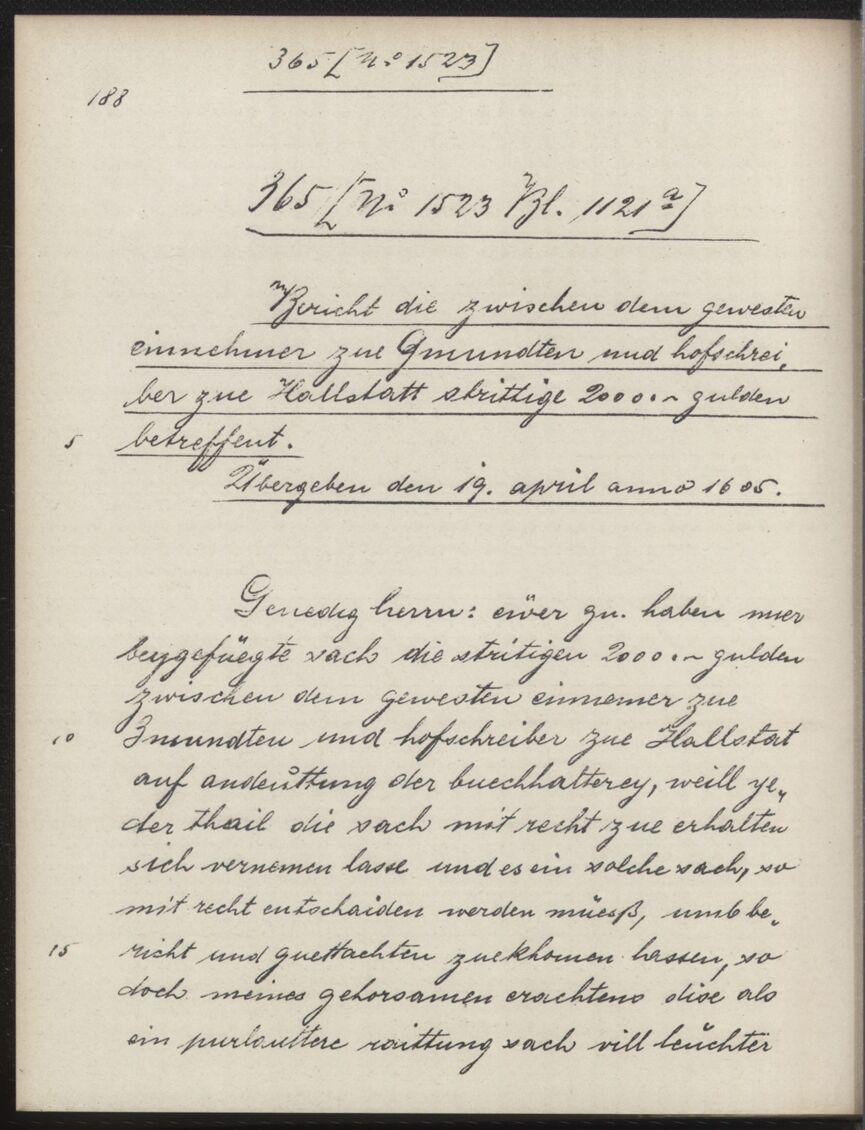 365 [No 1523]
188
365 [No 1523 Bl. 1121a]
Bericht die zwischen dem gewesten
einnehmer zue Gmundten und hofschrei„
ber zue Hallstatt strittige 2000.~ gulden
5 betreffent.
Übergeben den 19. april anno 1605.
Genedig herrn: eüer gn. haben mier
beygefüegte sach die stritigen 2000.~ gulden
zwischen dem gewesten einnemer zue
10 Gmundten und hofschreiber zue Hallstat
auf andeüttung der buechhalterey, weill ye„
der thail die sach mit recht zue erhalten
sich vernemen lasse und es ein solche sach, so
mit recht entschaiden werden müesß, umb be„
15 richt und guettachten zuekhomen lassen, so
doch meines gehorsamen erachtens dise als
ein purlauttere raittung sach vill leüchter